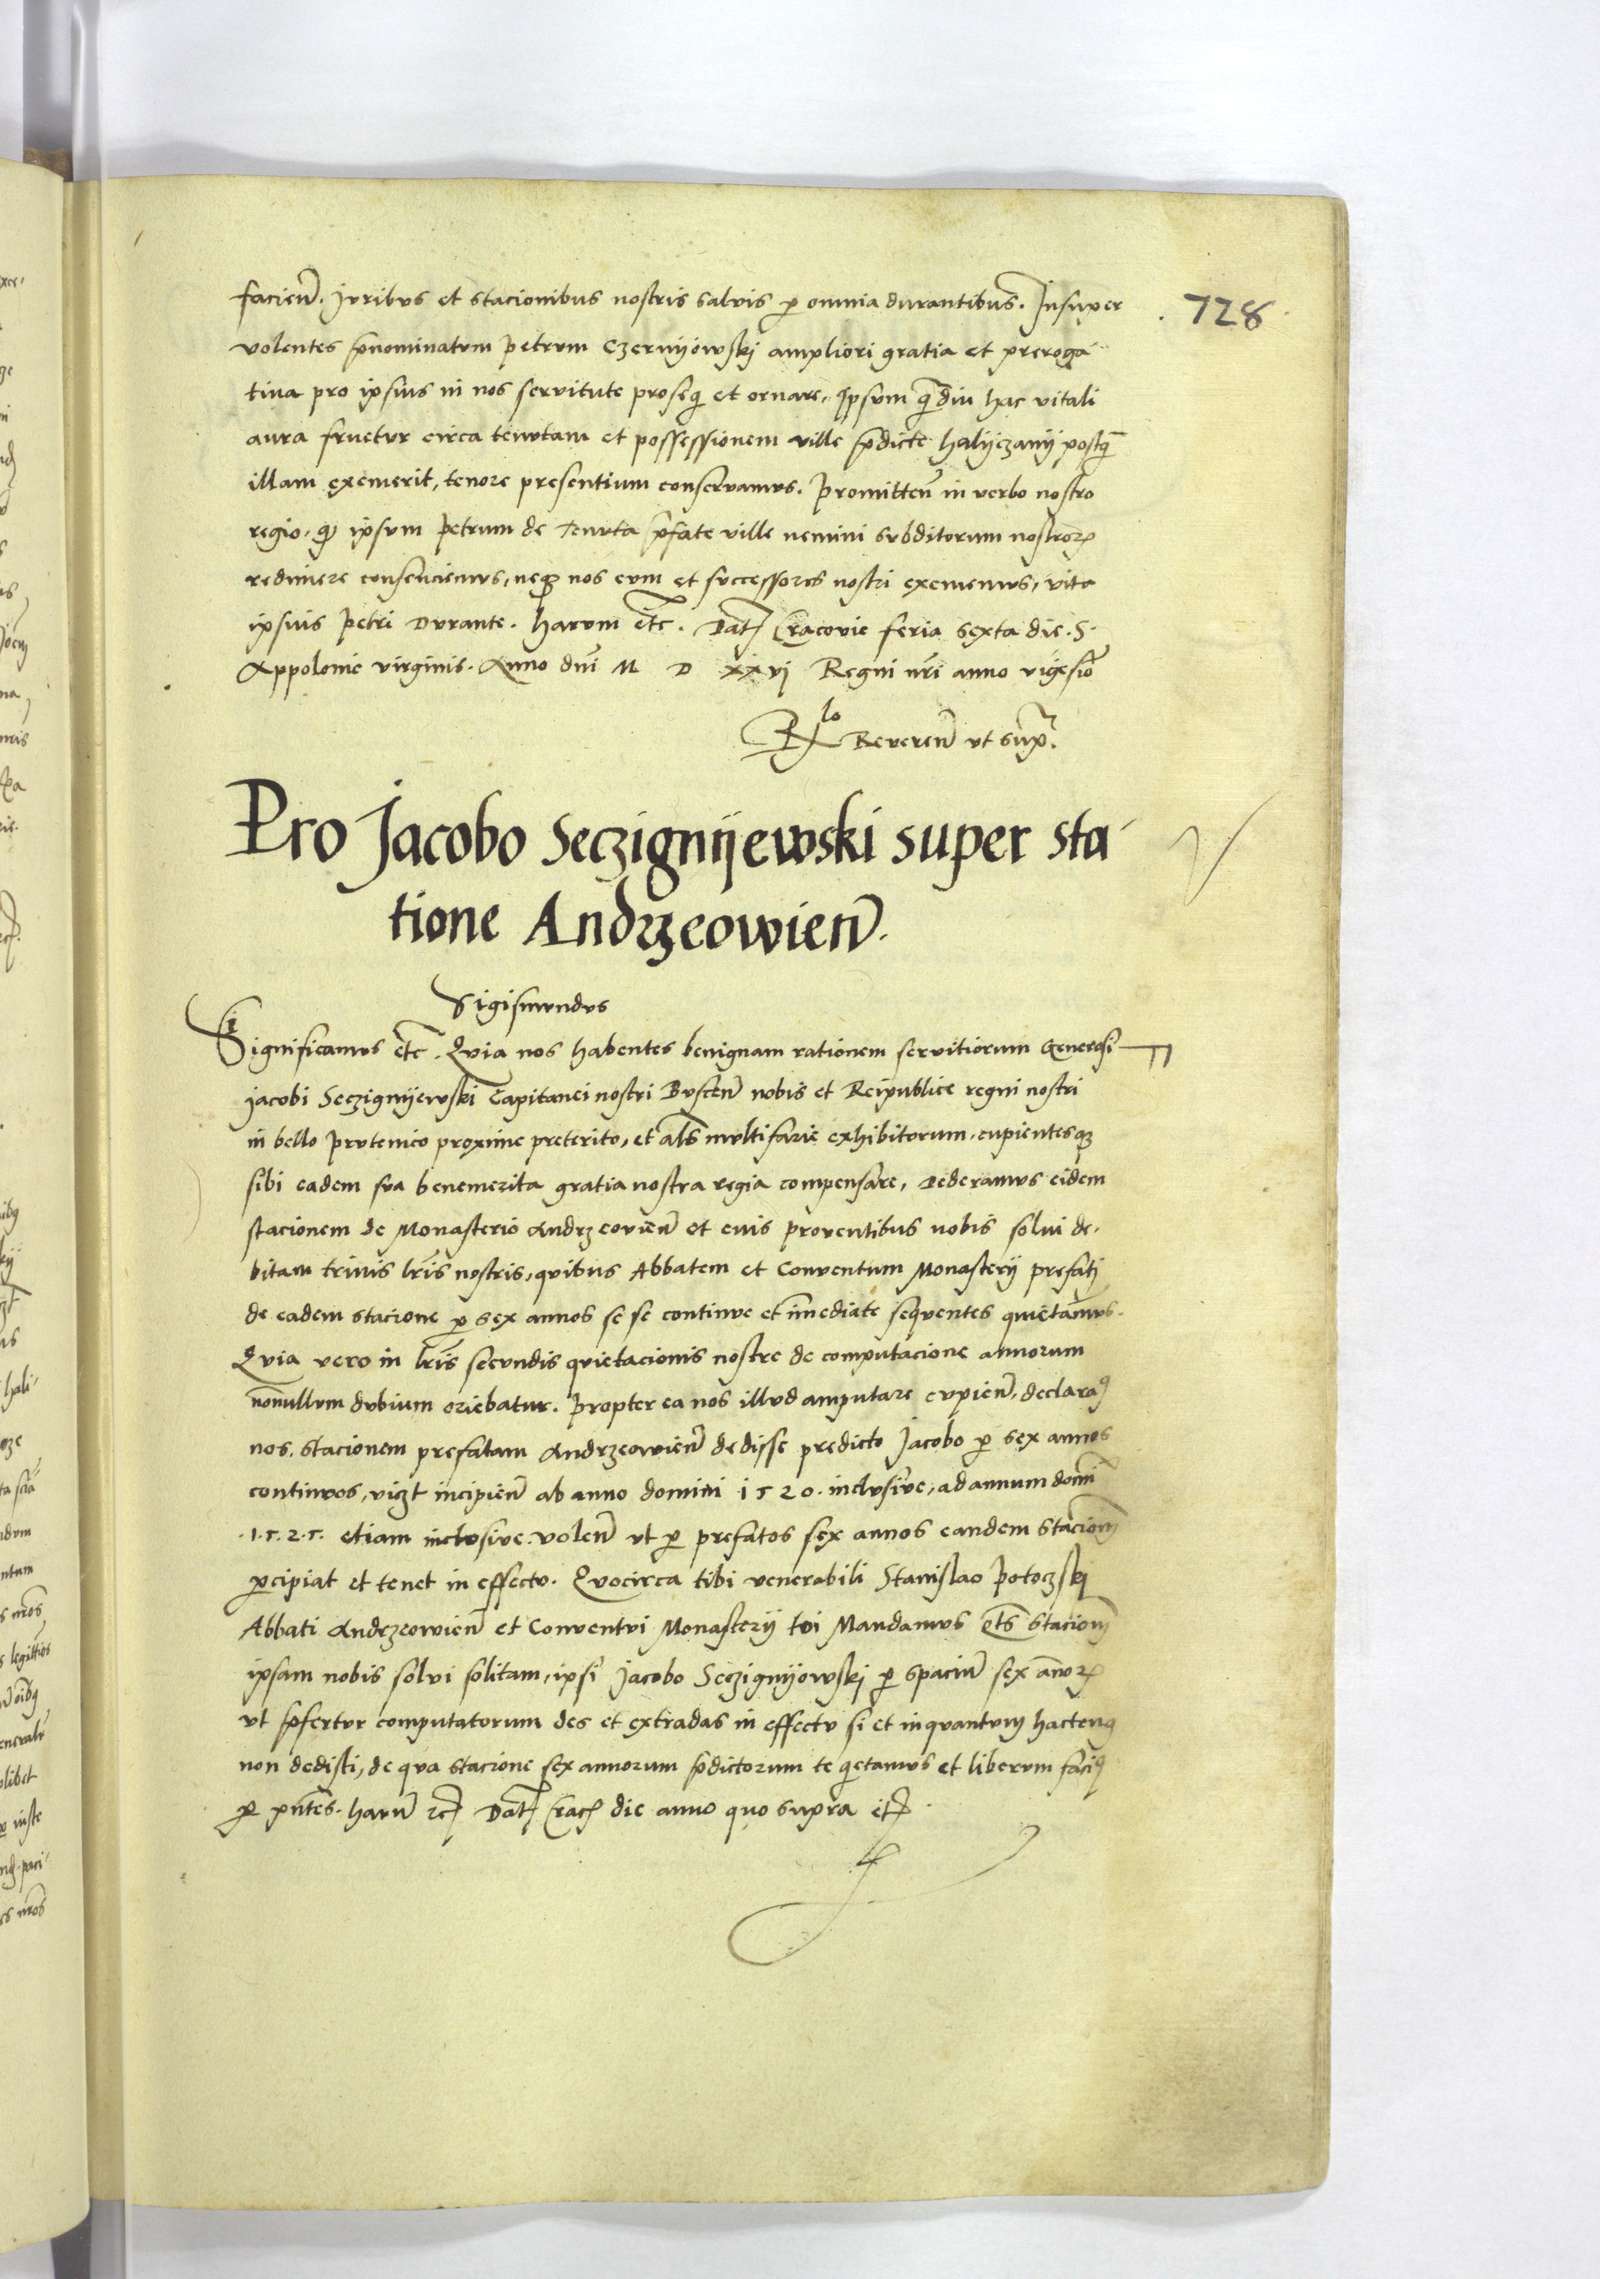 728
facien̄. Juribus et stacionibus nostris salvis p omnia durantibus. Insuper
volentes p̄nominatum Petrum Czernyowskj ampliori gratia et preroga
tiva pro ipsius in nos servitute proseq̄ et ornare. Ipsum q̄mdiu hac vitali
aura fruetur circa tenutam et possessionem ville p̄dicte halyczany postq̄
illam exemerit, tenore presentium conservamus. Promitten̄ in verbo nostro
regio. q ipsum Petrum de tenuta p̄fate ville nemini subditorum nostroꝝ
redimere consenciemus, neqꝫ nos eum et successores nostri exememus, vita
ipsius Petri durante. harum etc̄. Dat Cracovie feria sexta die. S.
Appolonie virginis. Anno dn̄i M D xxvj Regni nr̄i anno vigesīo
Rlo Reveren̄ ut sup̄.
Pro Jacobo Seczignyewski super sta
tione Andrzeowien̄.
Sigismundus
Significamus etc̄. Quia nos habentes benignam rationem servitiorum Generosi
Jacobi Seczignyewski Capitanei nostri Buscen̄ nobis et Reipublice regni nostri
in bello prutenico proxime preterito, et al̄s multifarie exhibitorum. cupientesqꝫ
sibi eadem sua benemerita gratia nostra regia compensare, Dederamus eidem
stacionem de Monasterio Andrzeovien̄ et eius proventibus nobis solui de.
bitam trinis lr̄is nostris, quibus Abbatem et Conventum Monasterij prefatj
de eadem stacione p sex annos se se continue et īmediate sequentes quietavimus.
Quia vero in lr̄is secundis quietacionis nostre de computacione annorum
nōnullum dubium oriebatur. Propter ea nos illud amputare cupien̄, declaraꝫ
nos, stacionem prefatam Andrzeowien̄ dedisse predicto Jacobo p sex annos
continuos, viꝫt incipien̄ ab anno domini 1520. inclusive, ad annum domī
.1.5.2.5. etiam inclusive. volen̄ ut p prefatos sex annos eandem stacionē
pcipiat et tenet in effectu. Quocirca tibi venerabili Stanislao Potoczskj
Abbati Andrzeowien̄ et Conventui Monasterij tui Mandamus et̄s stacionē
ipsam nobis solvi solitam, ipsi Jacobo Seczignyowskj p spaciū sex anoꝝ
ut p̄fertur computatorum des et extradas in effectu si et inquantum hactenꝰ
non dedisti, de qua stacione sex annorum p̄dictorum te q̄etamus et liberum faciꝰ
p pn̄tes. harū etc Dat Crac̄ die anno quo supra etc.